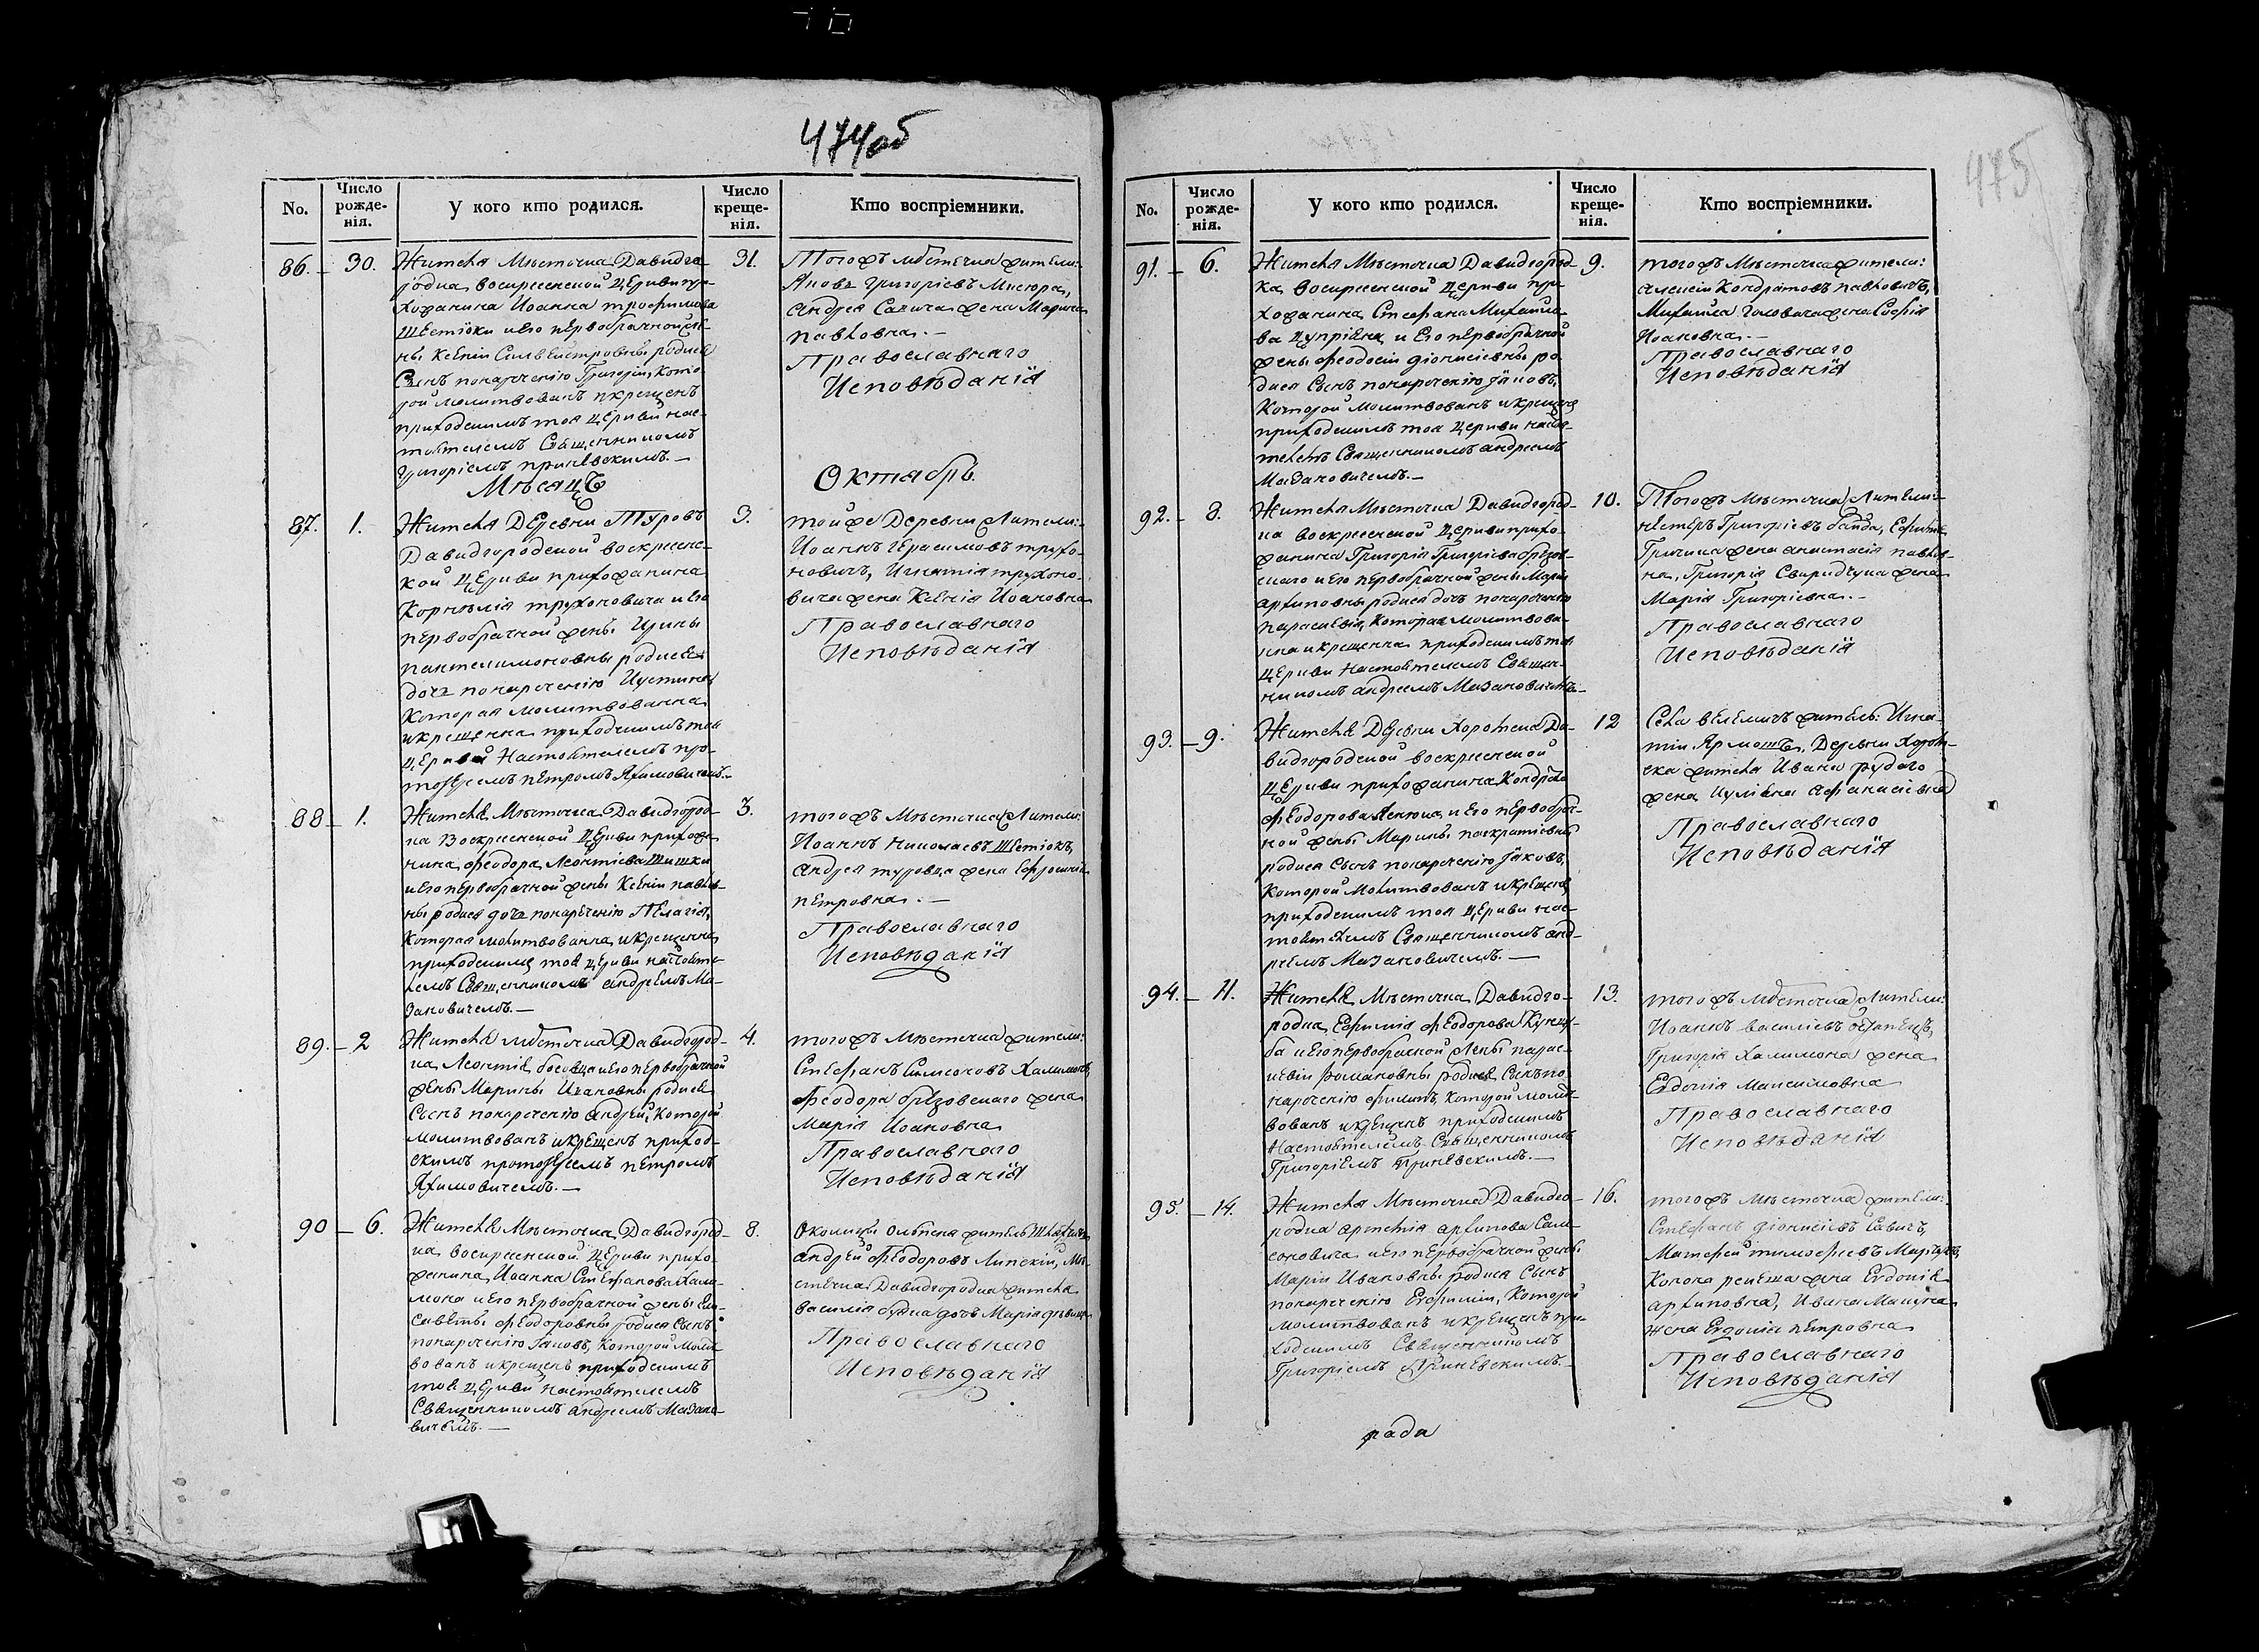 474об
No.
Число рожденія.
У кого кто родился.
Число крещенія.
Кто воспріемники.
86. 30.
Жителя Мѣстечка Давидго-
родка воскресенской Церкви при-
хожанина Иоанна трофимова
Шетюки и Его пЕрвобрачной же-
ны Ксеніи Сильвестровны родился
Сынъ понаречению Григорій, кото-
рой молитвованъ и крещенъ
приходскимъ тоя Церкви нас-
тоятелемъ Священникомъ
Григоріемъ
31.
Тогожъ мѣстечка жители:
Яковъ Григоріевъ
Андрея Савича жена Марина
павловна. —
Православнаго
Исповѣданія
Мѣсяцъ Октябрь.
87. 1.
Жителя ДЕревни Туровъ
Давидгородской воскресенс-
кой ЦЕркви прихожанина
Корнѣлія труханович и Его
пЕрвобрачной жены Ирины
пантелимоновны родилась
дочь понаречению Иустина
Которая молитвованна
и крещенна приходскимъ тоя
ЦЕркви Настоятелемъ про-
тоіереемъ пЕтромъ Яхимовичемъ. —
3.
тойже Деревни Жители:
Иоаннъ Герасимовъ трухо-
новичъ, Игнатія трухоно-
вича жена Ксенія Иоановна
Православнаго
Исповѣданія
88 1.
Жителя Мѣстечка Давидгород-
ка Воскресенской ЦЕркви прихожа-
нина феодора Леонтіева Шишки
и Его пЕрвобрачной жены Ксеніи павлов-
ны родися дочь понаречению ПЕлагія,
Которая молитвованна и крещенна
приходскимъ тоя ЦЕркви настояте-
лемъ Священникомъ андрЕемъ Ма-
зановичемъ. —
3.
тогожъ Мѣстечка Жители:
Иоаннъ Николаевъ ШЕтюкъ,
Андрея туровца жена Ефросинія
пЕтровна. —
Православнаго
Исповѣданія
89. 2
Жителя мѣстечка Давидгород-
ка Леонтія босовца и Его пЕрвобрачной
жены Марины Ивановны родися
Сынъ понаречению Андрей, Которой
молитвованъ и крЕщенъ приход-
скимъ протоіереемъ пЕтромъ
Яхимовичемъ. —
4.
тогожъ Мѣстечка жители:
СтЕфанъ Симеоновъ Халимонъ,
Феодора брезовскаго жена
Марія Иоановна
Православнаго
Исповѣданія
90 6.
Жителя Мѣстечка Давидгород-
ка воскресенской ЦЕркви прихо-
жанина Иоанна СтЕфанова Хали-
мона и Его пЕрвобрачной жены Ели-
саветы феодоровны родися Сынъ
понаречению Іаковъ, Которой молит-
вованъ и крещенъ приходскимъ
тоя ЦЕркви настоятелемъ
Священникомъ Андреемъ Мазано-
вичемъ. —
8.
Околицы Ольпеня житель Шляхтичь
Андрей Феодоровъ Липскій, Мѣ-
стечка Давидгородка жителя
василія будка дочь Марія дѣвица
Православнаго
Исповѣданія
475
No.
Число рожденія.
У кого кто родился.
Число крещенія.
Кто воспріемники.
91. 6.
Жителя Мѣстечка Давидгород-
ка воскресенской Церкви при-
хожанина Стефана Михайло-
ва Цупріека и Его первобрачной
жены феодосіи діонисіевны ро-
дися Сынъ понаречению Іаковъ,
Которой молитвованъ и крещенъ
приходскимъ тоя Церкви настоя-
телемъ Священникомъ андреемъ
Мазановичемъ. —
9.
тогожъ Мѣстечка жители:
алексій Кондратовъ павловичъ,
Михайла Головача жена Софія
Иоановна. —
Православнаго
Исповѣданія
92. 8.
Жителя Мѣстечка Давидгород-
ка воскресенской Церкви прихо-
жанина Григорія Григоріева брезов-
скаго и Его пЕрвобрачной жены Маріи
архиповны родися дочь понаречению
параскевія, Которая молитвова-
нна и крещенна приходскимъ тоя
ЦЕркви настоятелемъ Священ-
никомъ андреемъ Мазановичемъ. —
10.
Тогожъ Мѣстечка Жители:
нЕстеръ Григоріевъ байда, Ефима
Гричика жена анастасія павлов-
на, Григорія Свиридчука жена
Марія Григоріевна. —
Православнаго
Исповѣданія
93. 9.
Жителя ДЕревни Хоромска Да-
видгородской воскресенской
ЦЕркви прихожанина Кондрата
феодорова и Его пЕрвобрач-
ной жены Марины панкратіевны
родися Сынъ понаречению Іаковъ,
Которой молитвованъ и крЕщенъ
приходскимъ тоя ЦЕркви нас-
тоятелемъ Священникомъ анд-
реемъ Мазановичемъ. —
12
Села вЕлемичъ житель: Игна-
тій Ярмошъ, Деревни Хором-
ска жителя Ивана рудаго
жена Иуліана афанасіевна
Православнаго
Исповѣданія
94. 11.
Жителя Мѣстечка Давидго-
родка Ефимія феодорова
и Его пЕрвобрачной Жены парас-
кевіи романовны родися Сынъ по-
наречению филипъ, Которой молит-
вованъ и крЕщенъ приходскимъ
Настоятелемъ Священникомъ
Григоріемъ
13.
тогожъ мѣстечка Жители:
Иоаннъ василіевъ
Григорія Халимона жена
Евдокія Максимовна
Православнаго
Исповѣданія
95. 14.
Жителя Мѣстечка Давидго-
родка артемія архипова Сам-
соновича и Его пЕрвобрачной жены
Маріи Ивановны родися Сынъ
понаречению Евфимій, Которой
молитвованъ и крЕщенъ при-
ходскимъ Священникомъ
Григоріемъ
16.
тогожъ Мѣстечка жители:
СтЕфанъ діонисіевъ Савичъ,
Матфей тимофеевъ
Конона рЕпеша жена Евдокія
архиповна, Ивана
жена Евдокія пЕтровна
Православнаго
Исповѣданія
рада